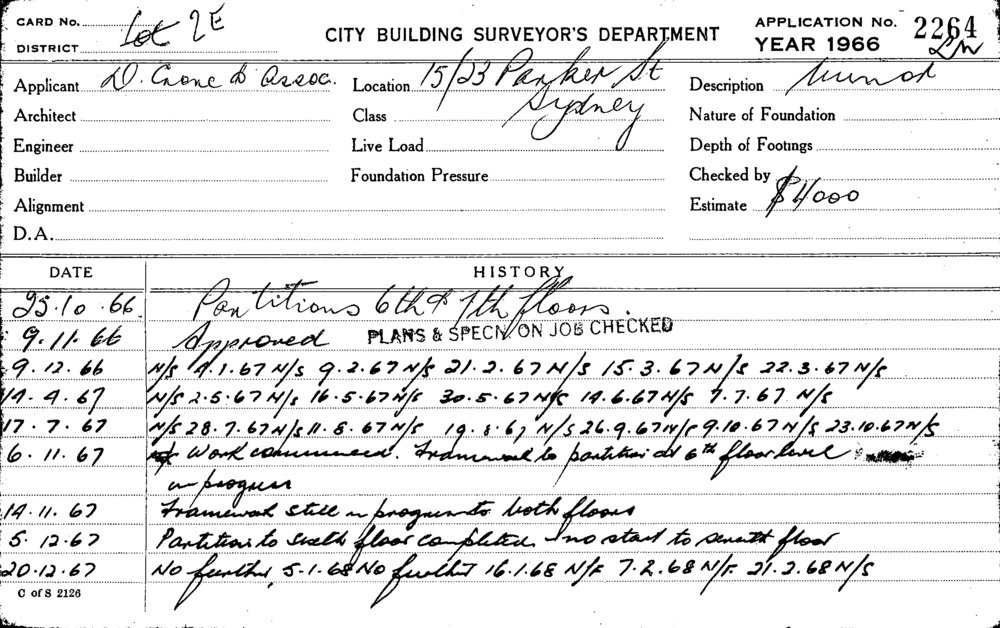 CARD No. Lot 2E
DISTRICT
CITY BUILDING SURVEYOR'S DEPARTMENT
APPLICATION No. 2264
YEAR 1966 LM
Applicant D. Crone & Assoc. Location 15/23 Parker St Description Minor
Sydney
Architect Class Nature of Foundation
Engineer Live Load Depth of Footings
Builder Foundation Pressure Checked by
Alignment Estimate $4000
D.A.
DATE HISTORY
25.10.66 Partitions 6th & 7th floors.
9.11.66 Approved PLANS & SPECN. ON JOB CHECKED
9.12.66 N/S 4.1.67 N/S 9.2.67 N/S 21.2.67 N/S 15.3.67 N/S 22.3.67 N/S
14.4.67 N/S 2.5.67 N/S 16.5.67 N/S 30.5.67 N/S 14.6.67 N/S 7.7.67 N/S
17.7.67 N/S 28.7.67 N/S 11.8.67 N/S 19.8.67 N/S 26.9.67 N/S 9.10.67 N/S 23.10.67 N/S
6.11.67 Work commenced. Framework to partition at 6th floor level
in progress
14.11.67 Framework still in progress to both floors
5.12.67 Partition to sixth floor completed no start to seventh floor
20.12.67 No further, 5.1.68 No further 16.1.68 N/F 7.2.68 N/F. 21.2.68 N/S
C of S 2126